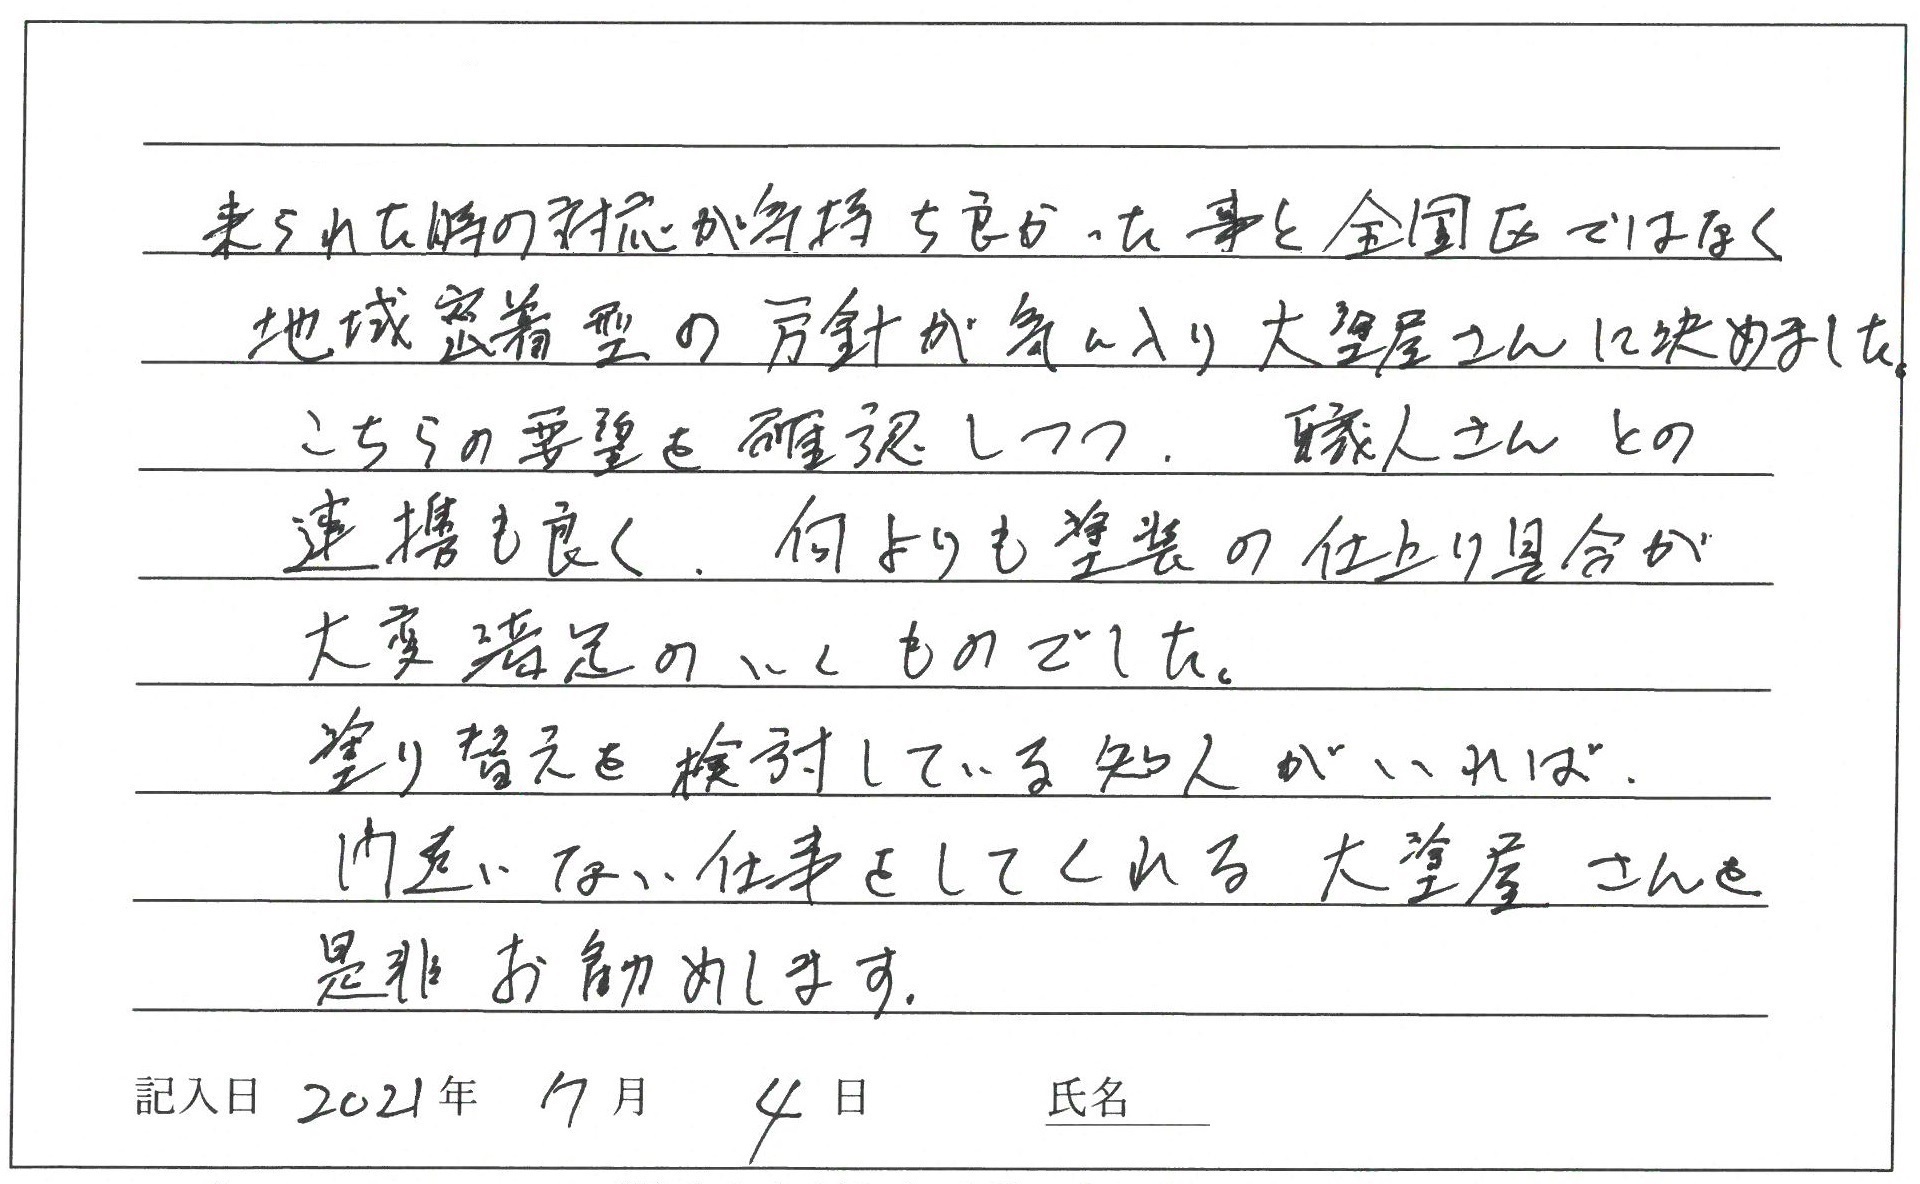 来られた時の対応が気持ち良かった事と全国区ではなく
地域密着型の方針が気に入り大塗屋さんに決めました。
こちらの要望を確認しつつ、職人さんとの
連携も良く、何よりも塗装の仕上り具合が
大変満足のいくものでした。
塗り替えを検討している知人がいれば、
間違いない仕事をしてくれる大塗屋さんを
是非お勧めします。
記入日 2021年 7月 4日 氏名